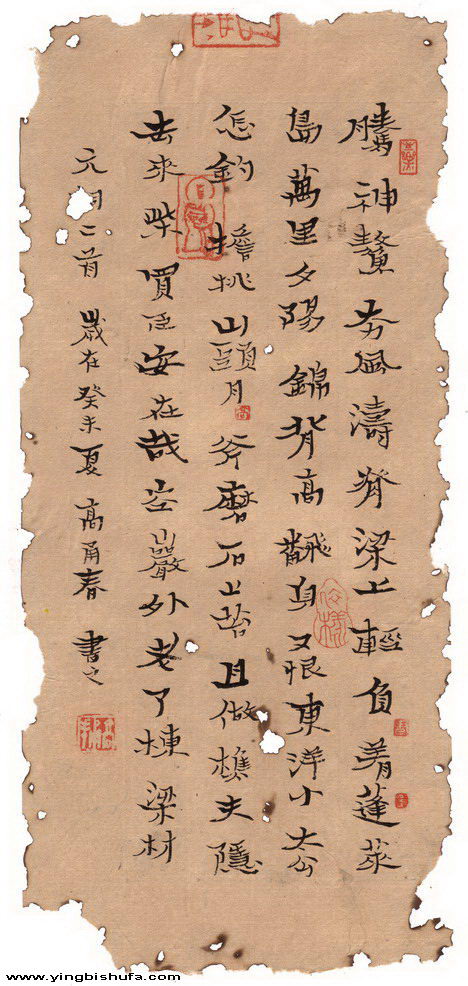 騰神鰲夯風濤脊梁上輕負着蓬萊
島萬里夕陽錦背高飜身又恨東洋小太公
怎釣 擔挑山頭月斧磨石上苔且做樵夫隱
去來柴買臣安在哉空巖外老了棟梁材
元曲二首 歲在癸未夏 高甬春 書之
www.yingbishufa.com